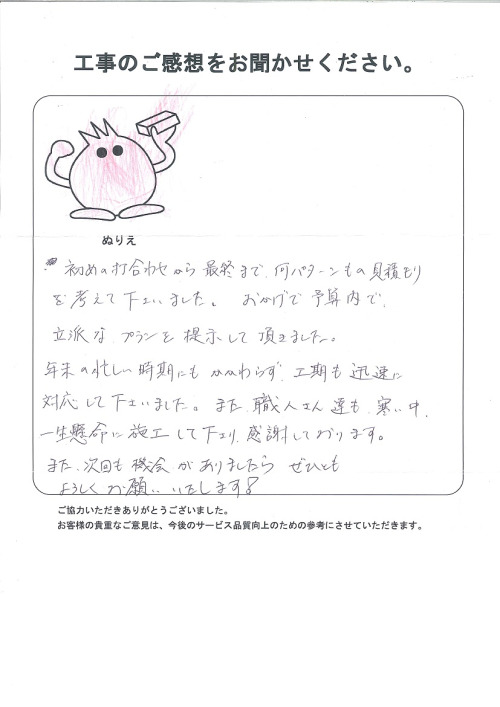 工事のご感想をお聞かせください。
ぬりえ
初めの打合わせから最終まで、何パターンもの見積もり
を考えて下さいました。 おかげで予算内で、
立派な プランを 提示して頂きました。
年末の忙しい時期にもかかわらず、工期も迅速に
対応して下さいました。また、職人さん達も、寒い中、
一生懸命に施工して下さり、感謝しております。
また、次回も機会がありましたら ぜひとも
よろしくお願いいたします!
ご協力いただきありがとうございました。
お客様の貴重なご意見は、今後のサービス品質向上のための参考にさせていただきます。